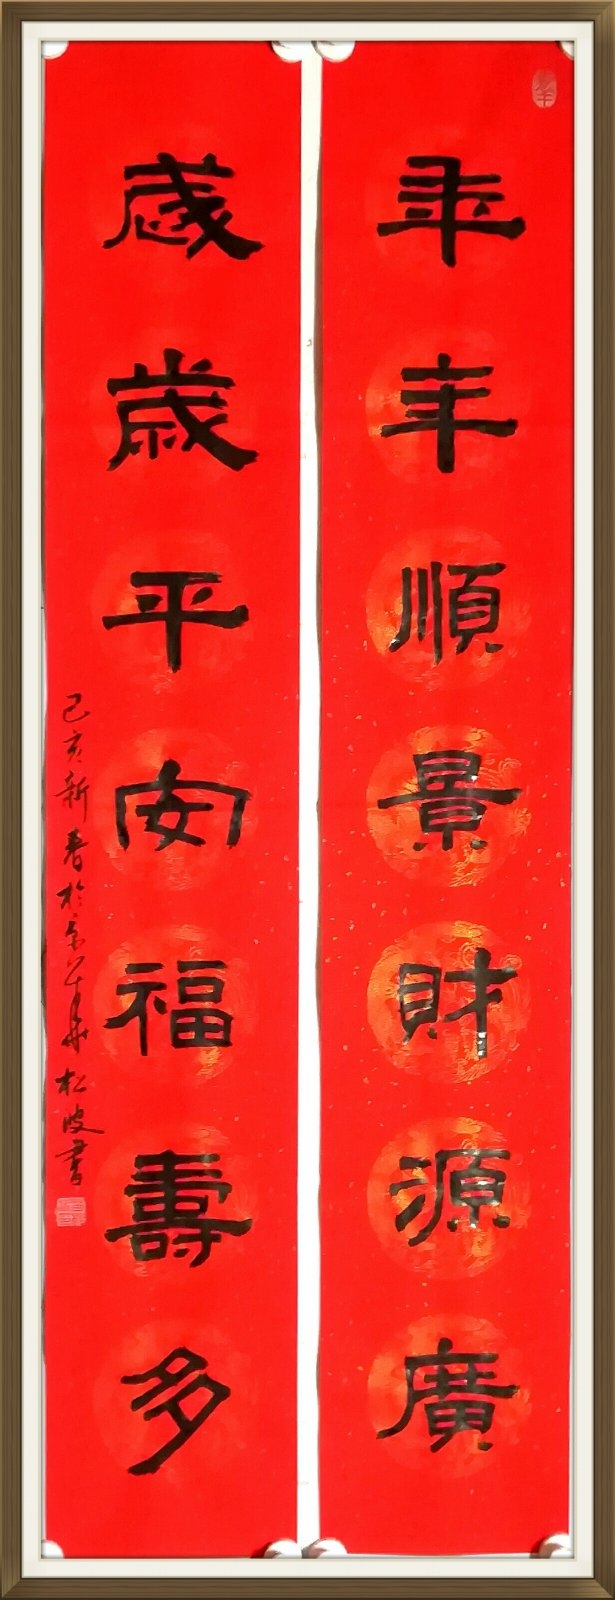 年年順景財源廣
歲歲平安福壽多
己亥新春於京華松波書